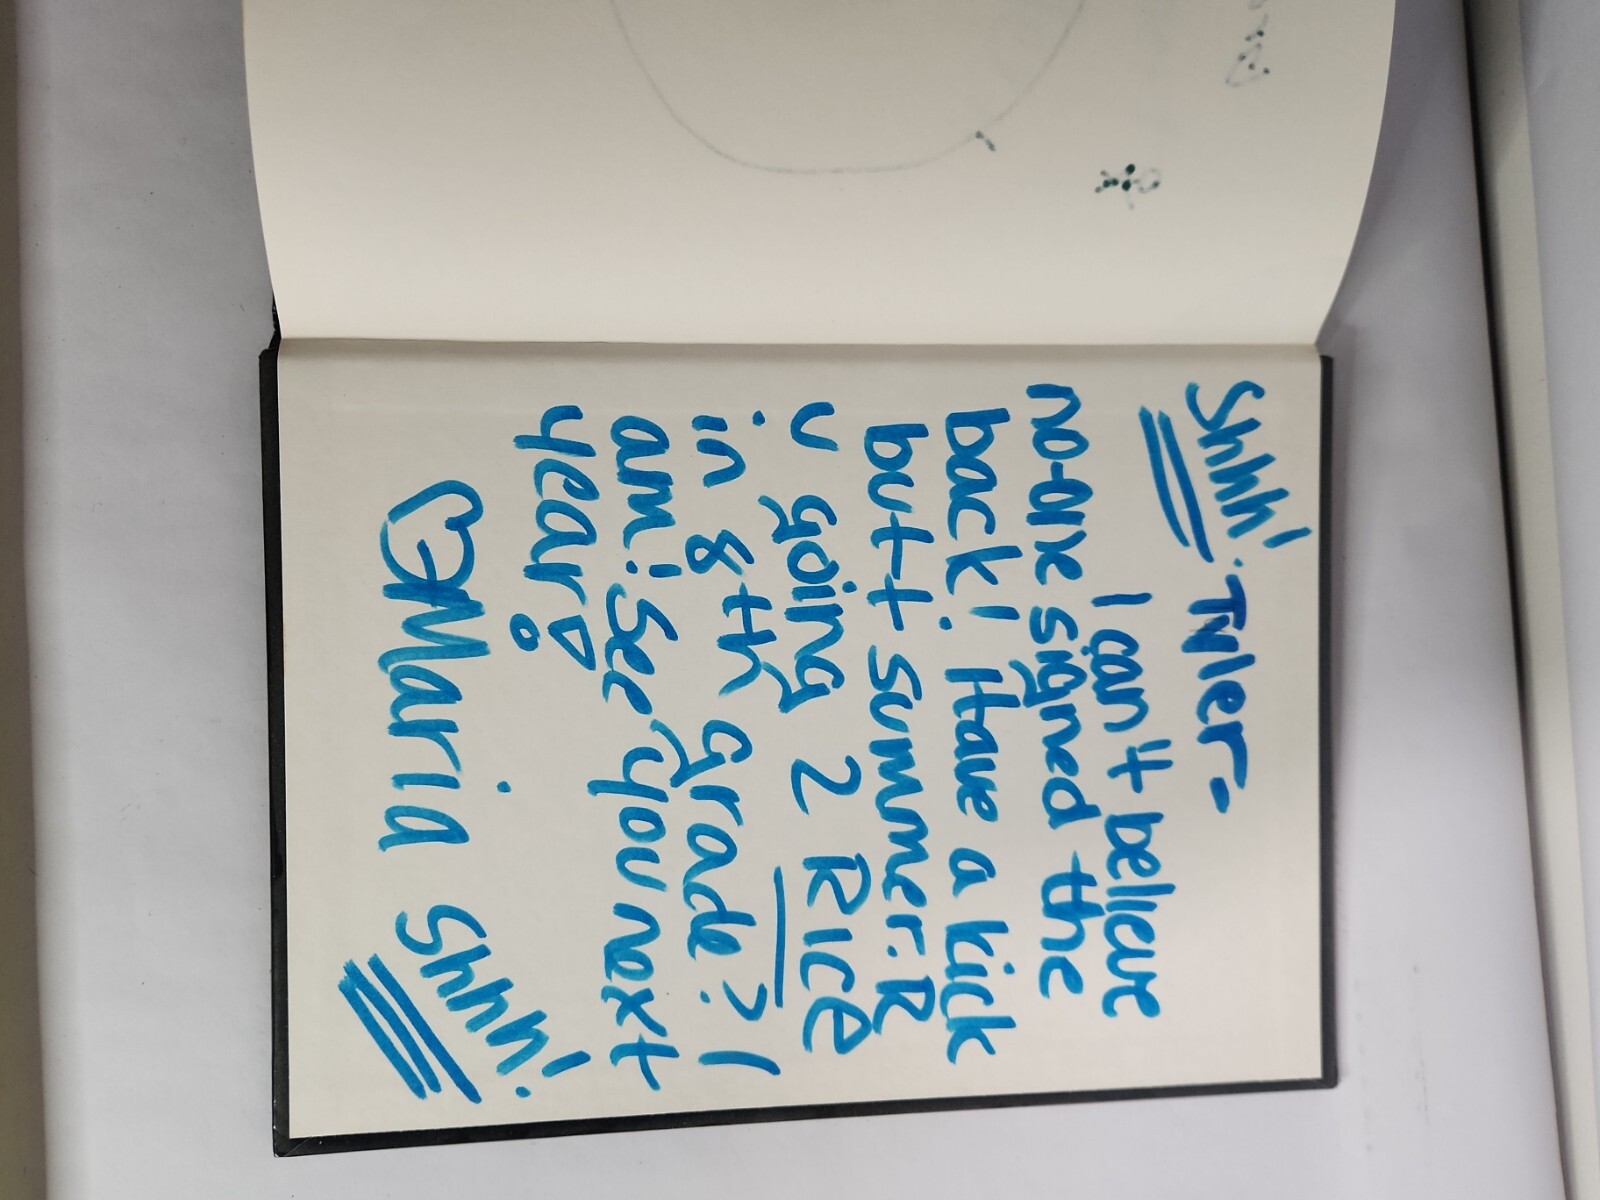 Shhhh!
Tyler-
I can't believe
no-one signed the
back! Have a kick
butt summer. R
u going 2 RICE
in 8th grade? I
am! See you next
year!
♡Maria
Shhh!